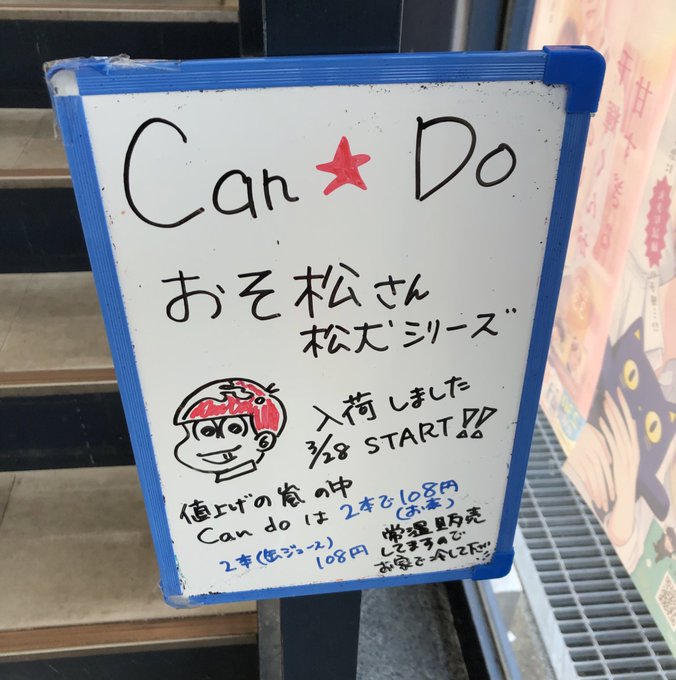 Can ★ Do
おそ松さん
松犬シリーズ
入荷しました
3/28 START!!
値上げの嵐の中
Can do は 2本で108円
(お茶)
2本(缶ジュース) 108円
常温販売
してますので
お家で冷してだ
甘すぎる